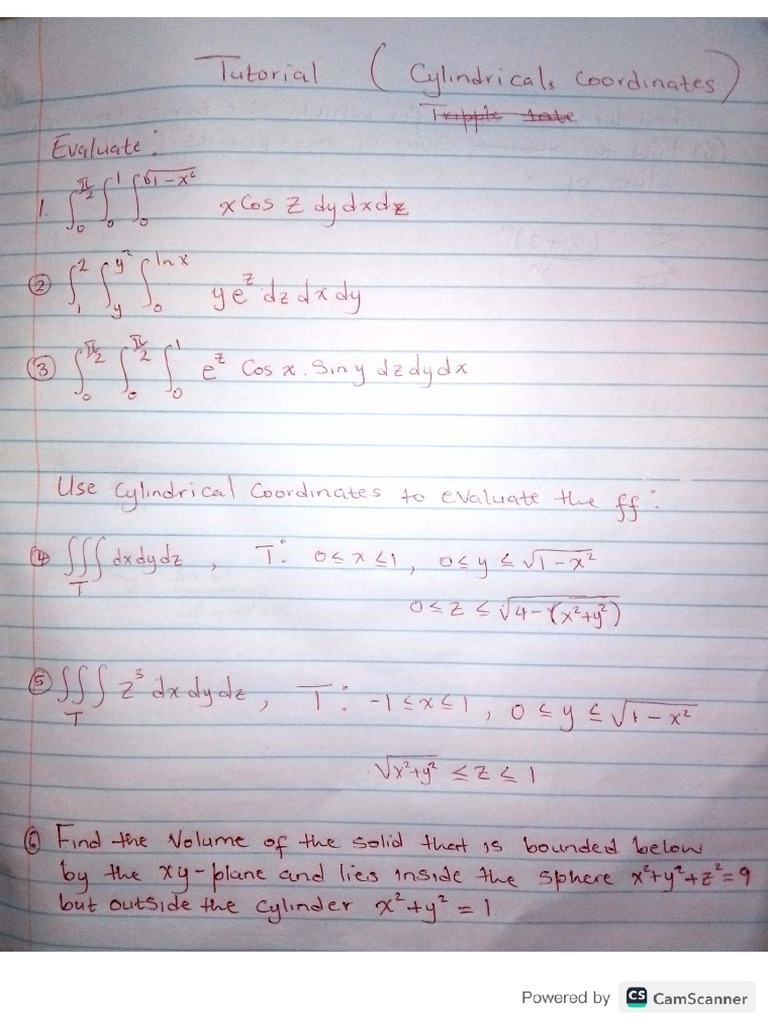 Tutorial ( Cylindrical, Coordinates)
Evaluate:
1. ∫₀^{π/2} ∫₀^1 ∫₀^{√1-x²} x Cos z dy dx dz
② ∫₁^2 ∫_y^{y²} ∫₀^{ln x} y e^z dz dx dy
③ ∫₀^{π/2} ∫₀^{π/2} ∫₀^1 e^z Cos x . Sin y dz dy dx
Use Cylindrical Coordinates to evaluate the ff:
④ ∫∫∫_T dx dy dz , T: 0 ≤ x ≤ 1, 0 ≤ y ≤ √1-x²
0 ≤ z ≤ √4-(x²+y²)
⑤ ∫∫∫_T z³ dx dy dz , T: -1 ≤ x ≤ 1, 0 ≤ y ≤ √1-x²
√x²+y² ≤ z ≤ 1
⑥ Find the Volume of the solid that is bounded below
by the xy-plane and lies inside the sphere x²+y²+z²=9
but outside the cylinder x²+y² = 1
Powered by CS CamScanner